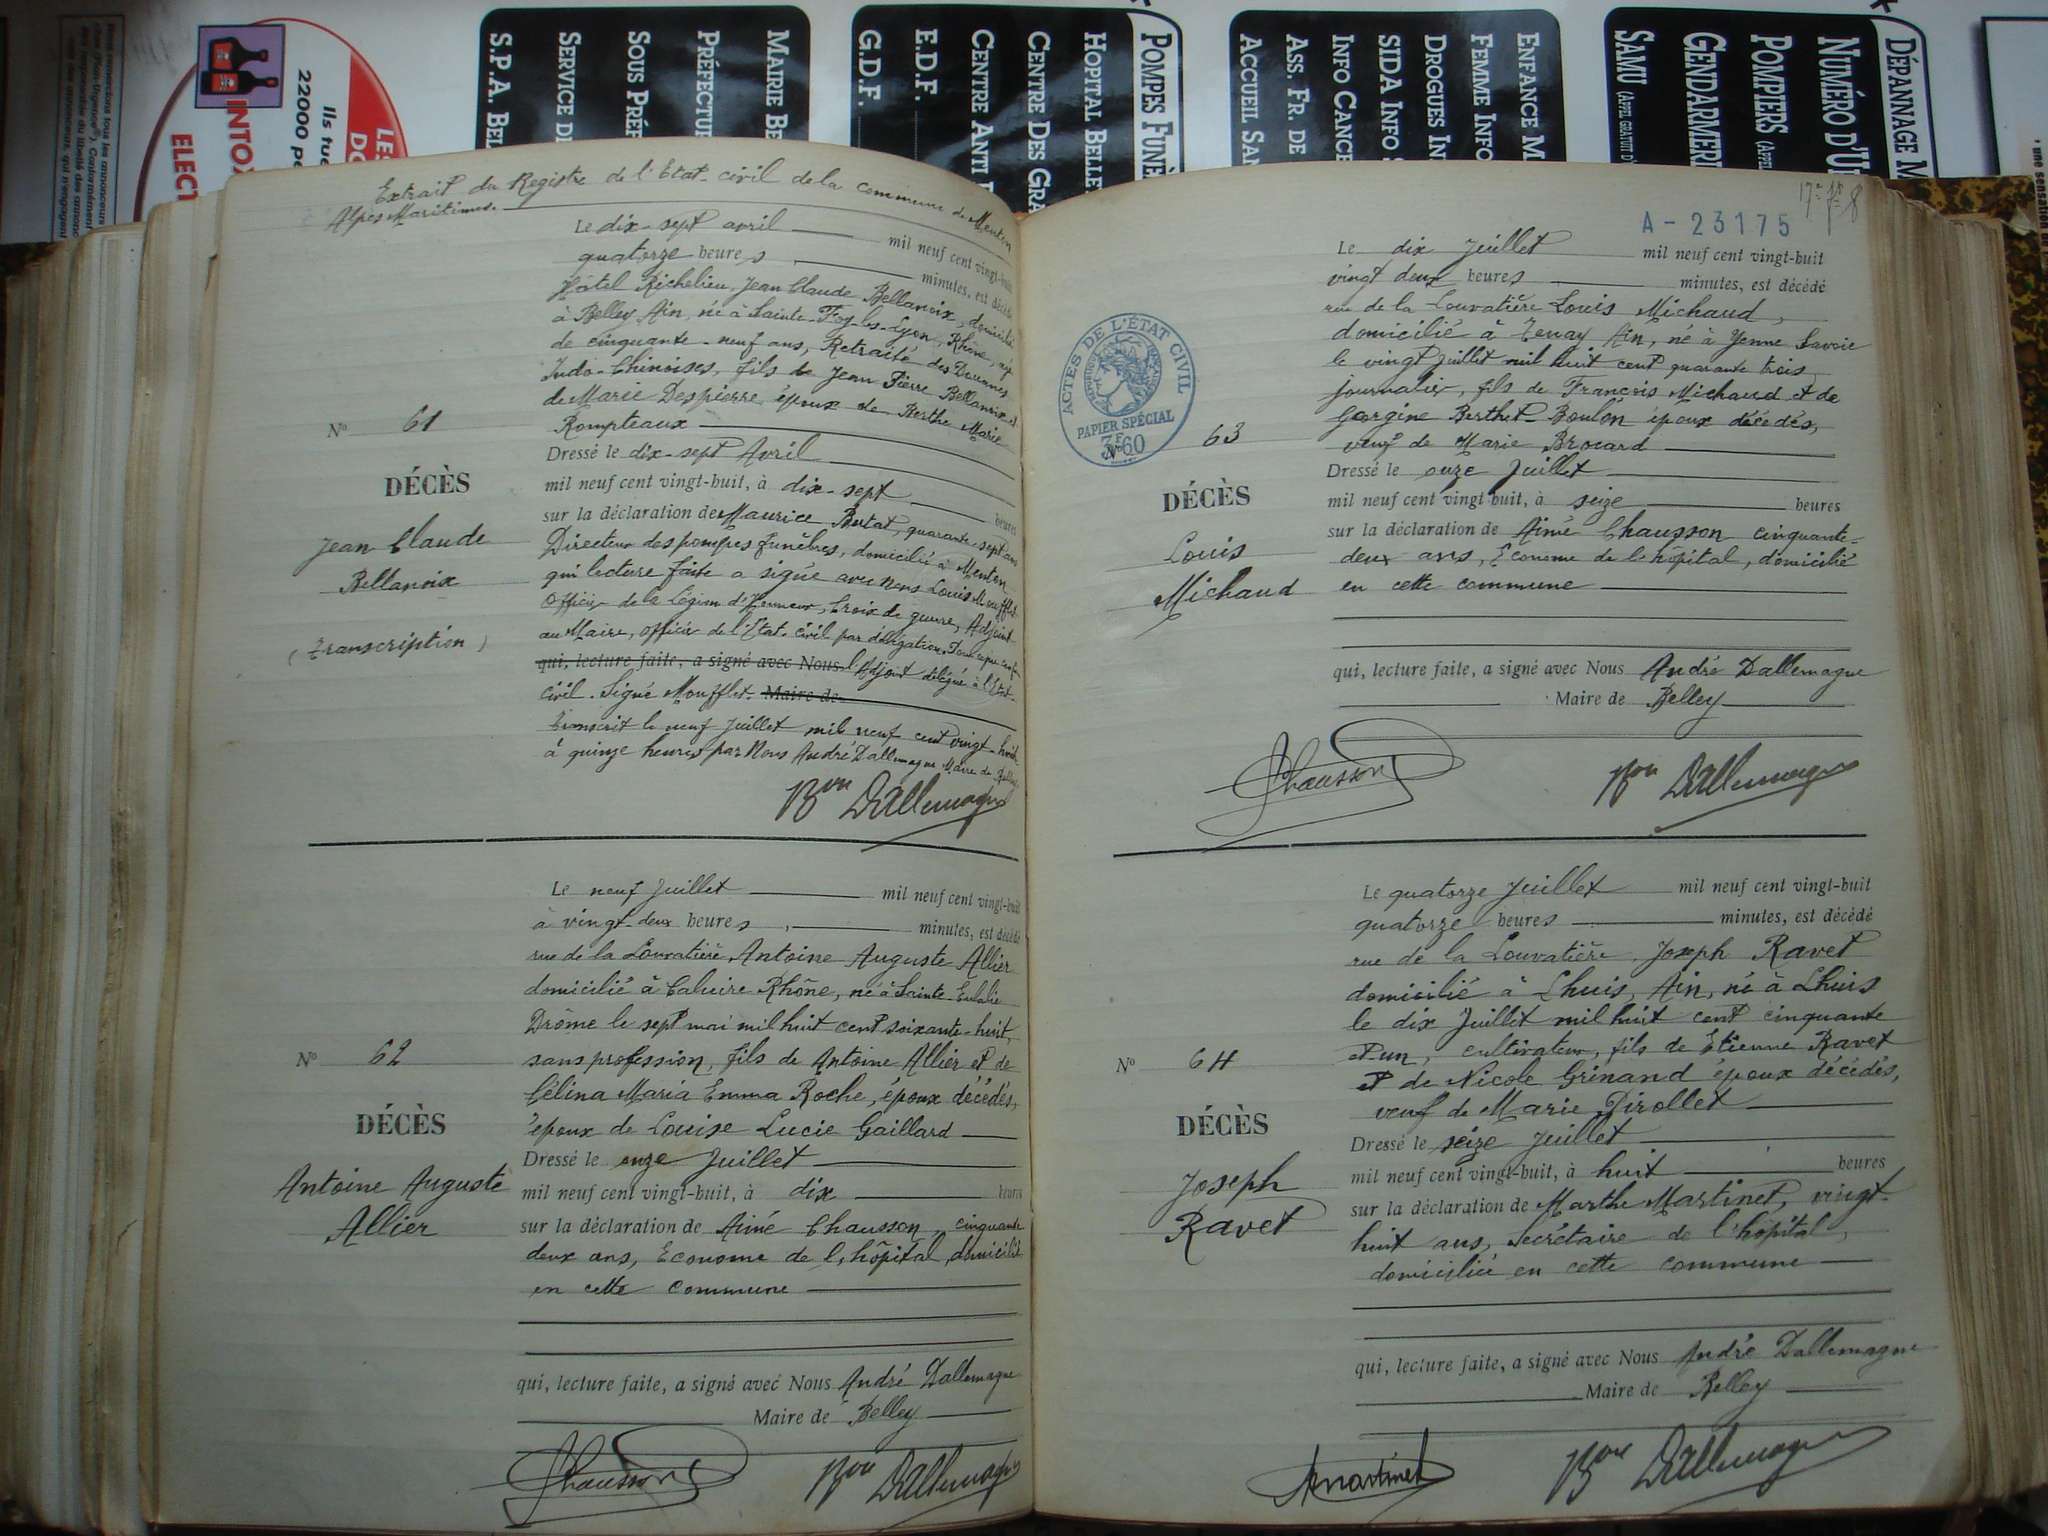 Extrait du Registre de l'Etat-civil de la commune de Menton
Alpes Maritimes.
Le dix-sept avril mil neuf cent vingt-huit
quatorze heures, minutes, est décédé
Hôtel Richelieu, Jean Claude Bellanoix, domicilié
à Belley Ain, né à Sainte-Foy-les-Lyon, Rhône, agé
de cinquante-neuf ans, Retraité des Douanes
Indo-Chinoises, fils de Jean Pierre Bellanoix et
de Marie Despierre, époux de Berthe Marie
Rompteaux
Dressé le dix-sept Avril
mil neuf cent vingt-huit, à dix-sept heures
sur la déclaration de Maurice quarante-sept ans
Directeur des pompes funèbres, domicilié à Menton
qui lecture faite a signé avec nous Louis Moufflet
Officier de la Légion d'Honneur, Croix de guerre, Adjoint
au Maire, officier de l'Etat-civil par délégation.
qui, lecture faite, a signé avec Nous l'Adjoint délégué à l'Etat-
civil. Signé Moufflet. Maire de
Transcrit le neuf Juillet mil neuf cent vingt-huit
à quinze heures par Nous André Dallemagne Maire de Belley
Bon Dallemagne
No 61
DÉCÈS
Jean Claude
Bellanoix
(Transcription)
Le neuf Juillet mil neuf cent vingt-huit
à vingt-deux heures, minutes, est décédé
rue de la Louvatière, Antoine Auguste Allier
domicilié à Caluire Rhône, né à Sainte-Eulalie
Drôme le sept mai mil huit cent soixante-huit,
sans profession, fils de Antoine Allier et de
Célina Maria Emma Roche, époux décédés,
époux de Louise Lucie Gaillard
Dressé le onze Juillet
mil neuf cent vingt-huit, à dix heures
sur la déclaration de Aimé Chausson, cinquante
deux ans, Econome de l'hôpital, domicilié
en cette commune
qui, lecture faite, a signé avec Nous André Dallemagne
Maire de Belley
Chausson Bon Dallemagne
No 62
DÉCÈS
Antoine Auguste
Allier
A-23175
Le dix Juillet mil neuf cent vingt-huit
vingt deux heures minutes, est décédé
rue de la Louvatière Louis Michaud,
domicilié à Tenay Ain, né à Yenne Savoie
le vingt Juillet mil huit cent quarante trois
journalier, fils de François Michaud et de
Gorgine Berthet-Boulon époux décédés,
veuf de Marie Brocard
Dressé le onze Juillet
mil neuf cent vingt-huit, à seize heures
sur la déclaration de Aimé Chausson cinquante-
deux ans, Econome de l'hôpital, domicilié
en cette commune
qui, lecture faite, a signé avec Nous André Dallemagne
Maire de Belley
Chausson Bon Dallemagne
ACTES DE L'ÉTAT CIVIL
PAPIER SPÉCIAL
3F60
No 63
DÉCÈS
Louis
Michaud
Le quatorze Juillet mil neuf cent vingt-huit
quatorze heures minutes, est décédé
rue de la Louvatière Joseph Ravet
domicilié à Lhuis, Ain, né à Lhuis
le dix Juillet mil huit cent cinquante
et un, cultivateur, fils de Etienne Ravet
et de Nicole Grinand époux décédés,
veuf de Marie Pirollet
Dressé le seize Juillet
mil neuf cent vingt-huit, à huit heures
sur la déclaration de Marthe Martinet, vingt-
huit ans, Secrétaire de l'hôpital,
domiciliée en cette commune
qui, lecture faite, a signé avec Nous André Dallemagne
Maire de Belley
Martinet Bon Dallemagne
No 64
DÉCÈS
Joseph
Ravet
INTOX
ELECT
22000
S.P.A. BEL
SERVICE DE
SOUS PRÉF
PRÉFECTUR
MAIRIE BE
G.D.F.
E.D.F.
CENTRE ANTI
CENTRE DES GRA
HOPITAL BELLE
POMPES FUNÈB
ACCUEIL SAN
ASS. FR. DE
INFO CANCE
SIDA INFO S
DROGUES IN
FEMME INFO
ENFANCE M
SAMU (APPEL GRATUIT D
GENDARMERI
POMPIERS (APPEL
NUMÉRO D'U
DÉPANNAGE M